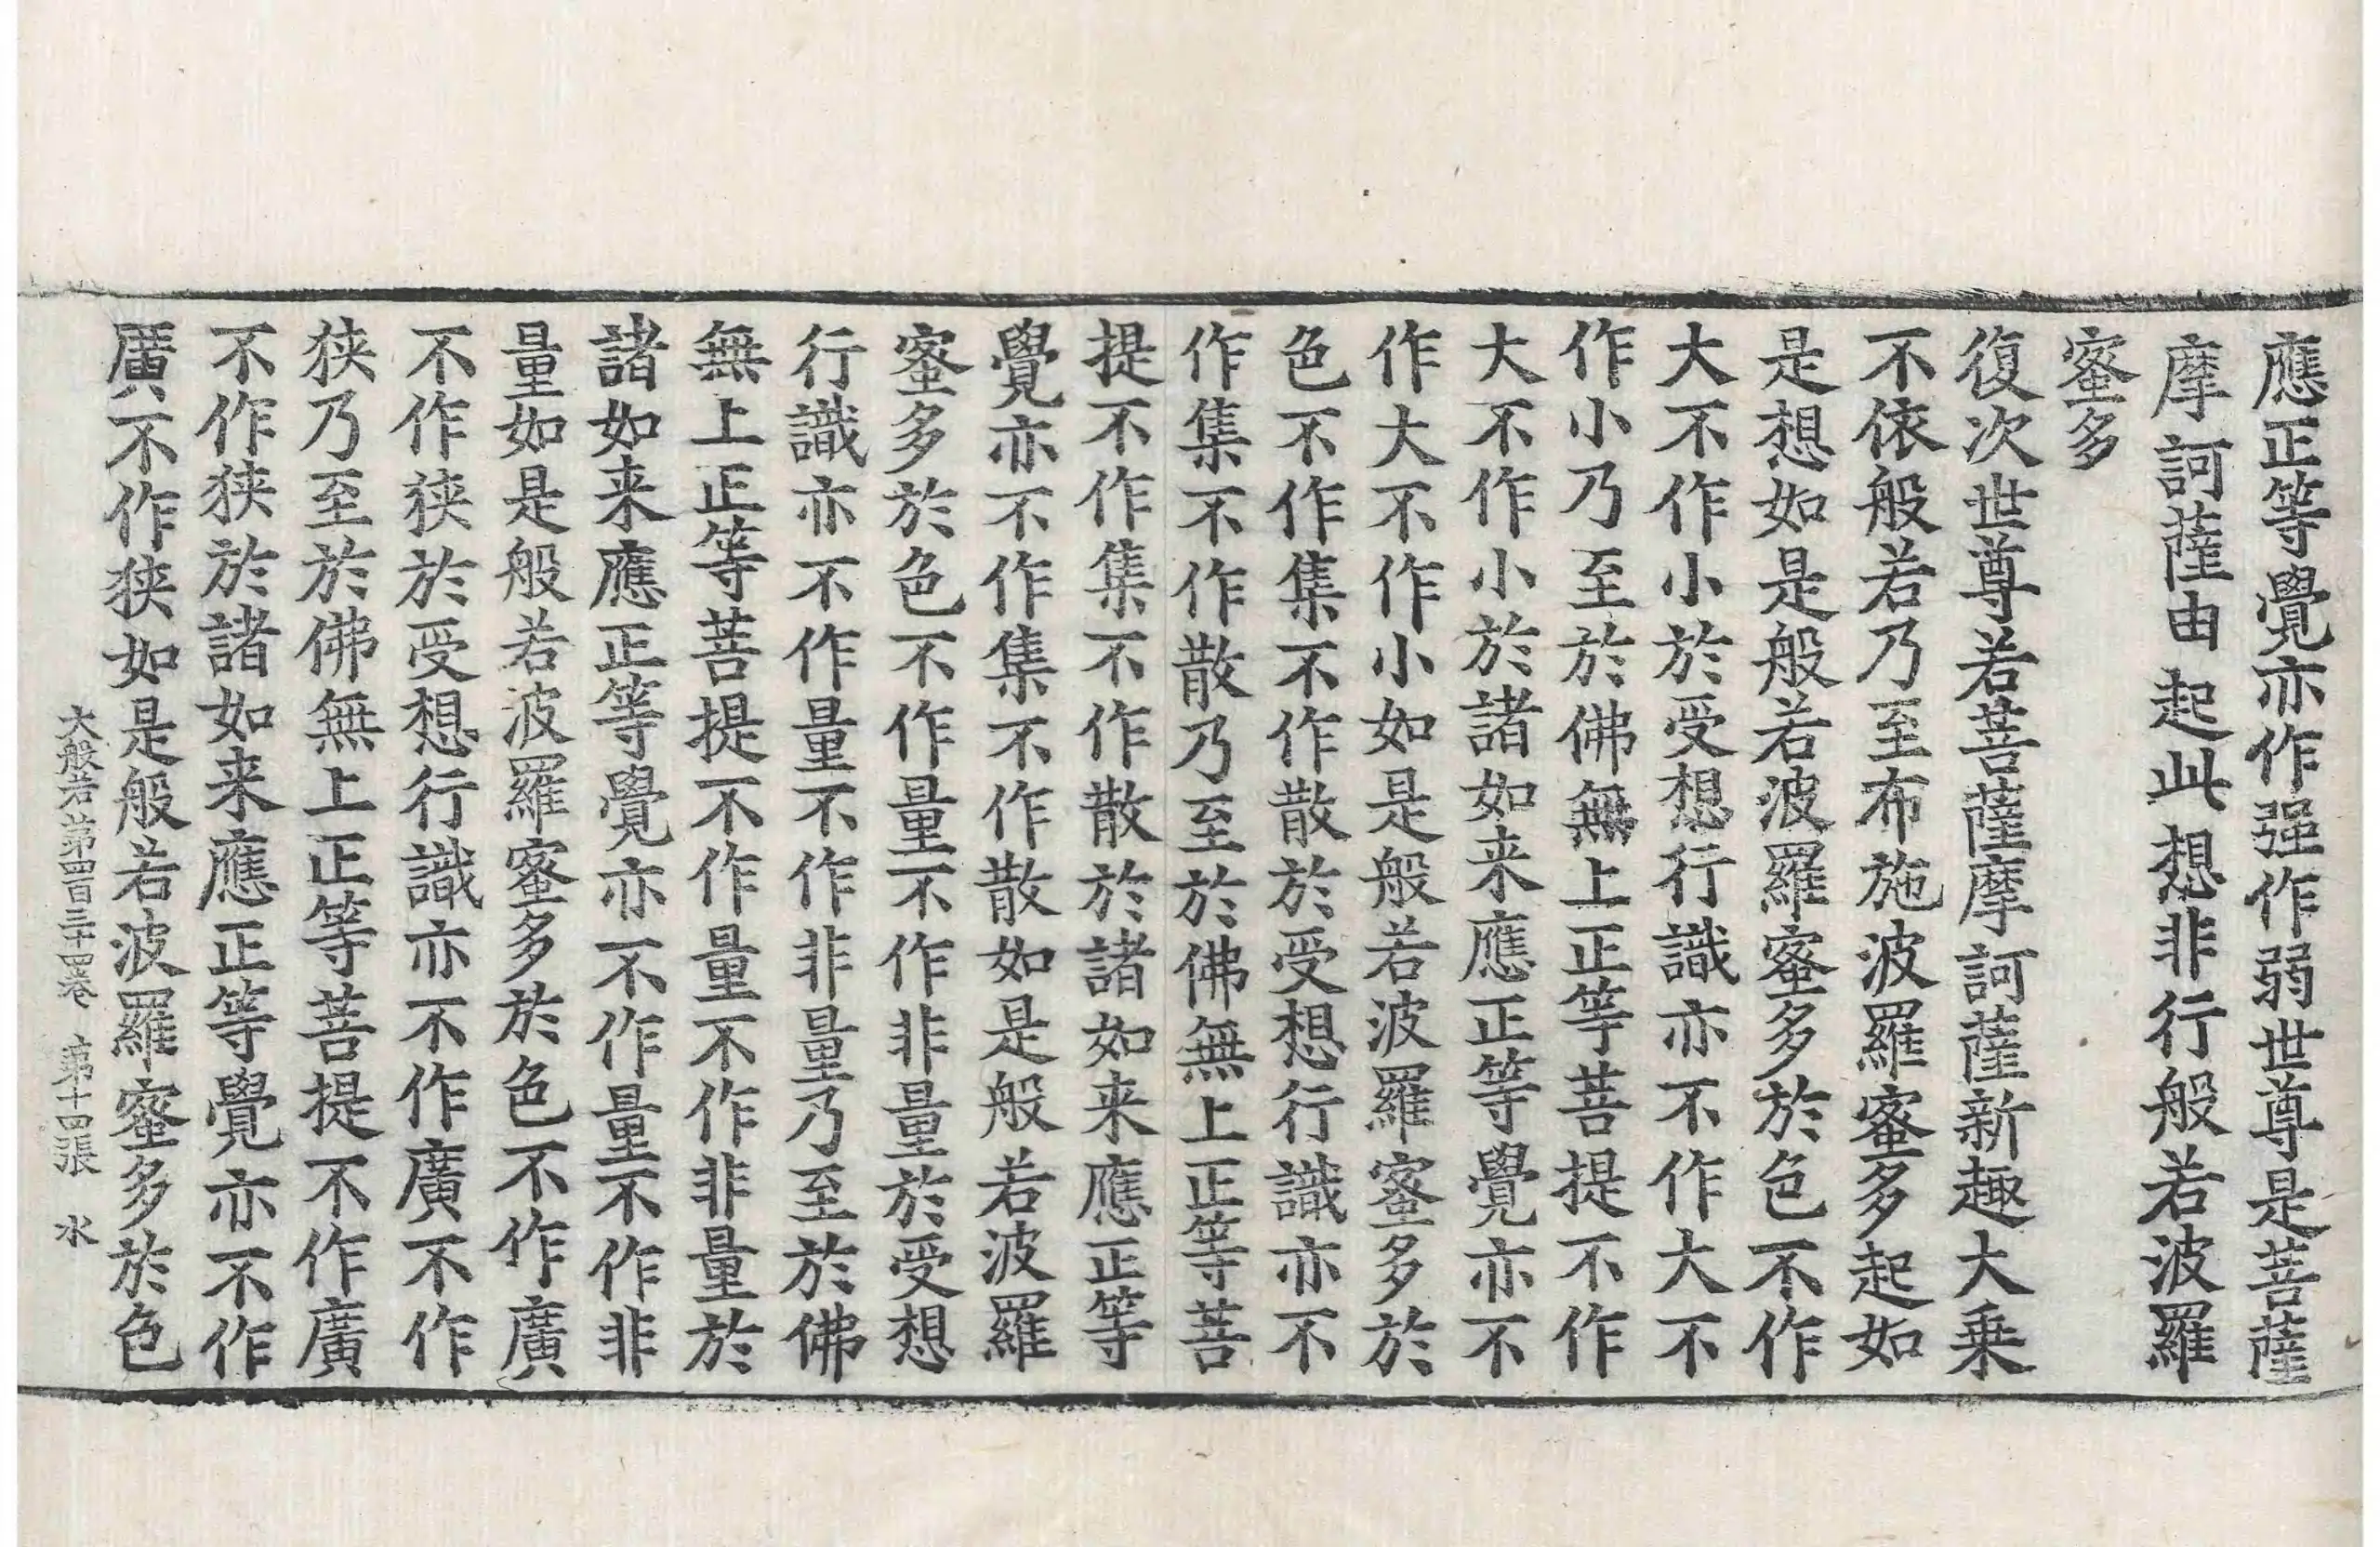 應正等覺亦作强作弱世尊是菩薩
摩訶薩由起此想非行般若波羅
蜜多
復次世尊若菩薩摩訶薩新趣大乗
不依般若乃至布施波羅蜜多起如
是想如是般若波羅蜜多於色不作
大不作小於受想行識亦不作大不
作小乃至於佛無上正等菩提不作
大不作小於諸如来應正等覺亦不
作大不作小如是般若波羅蜜多於
色不作集不作散於受想行識亦不
作集不作散乃至於佛無上正等菩
提不作集不作散於諸如来應正等
覺亦不作集不作散如是般若波羅
蜜多於色不作量不作非量於受想
行識亦不作量不作非量乃至於佛
無上正等菩提不作量不作非量於
諸如来應正等覺亦不作量不作非
量如是般若波羅蜜多於色不作廣
不作狭於受想行識亦不作廣不作
狭乃至於佛無上正等菩提不作廣
不作狭於諸如来應正等覺亦不作
廣不作狭如是般若波羅蜜多於色
大般若第四百三十四卷 第十四張 水